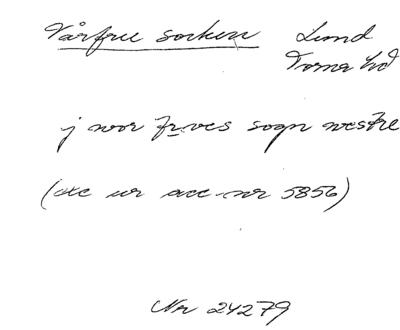 Vårfru socken Lund
Torna hd
j wor frves sogn westre
(exc ur acc nr 5856)
Nr 24279